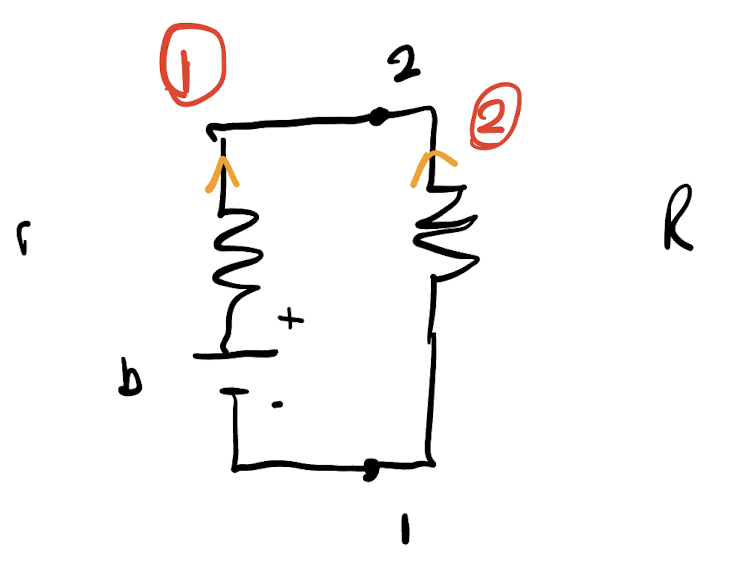 1
2
2
r
R
+
b
-
1